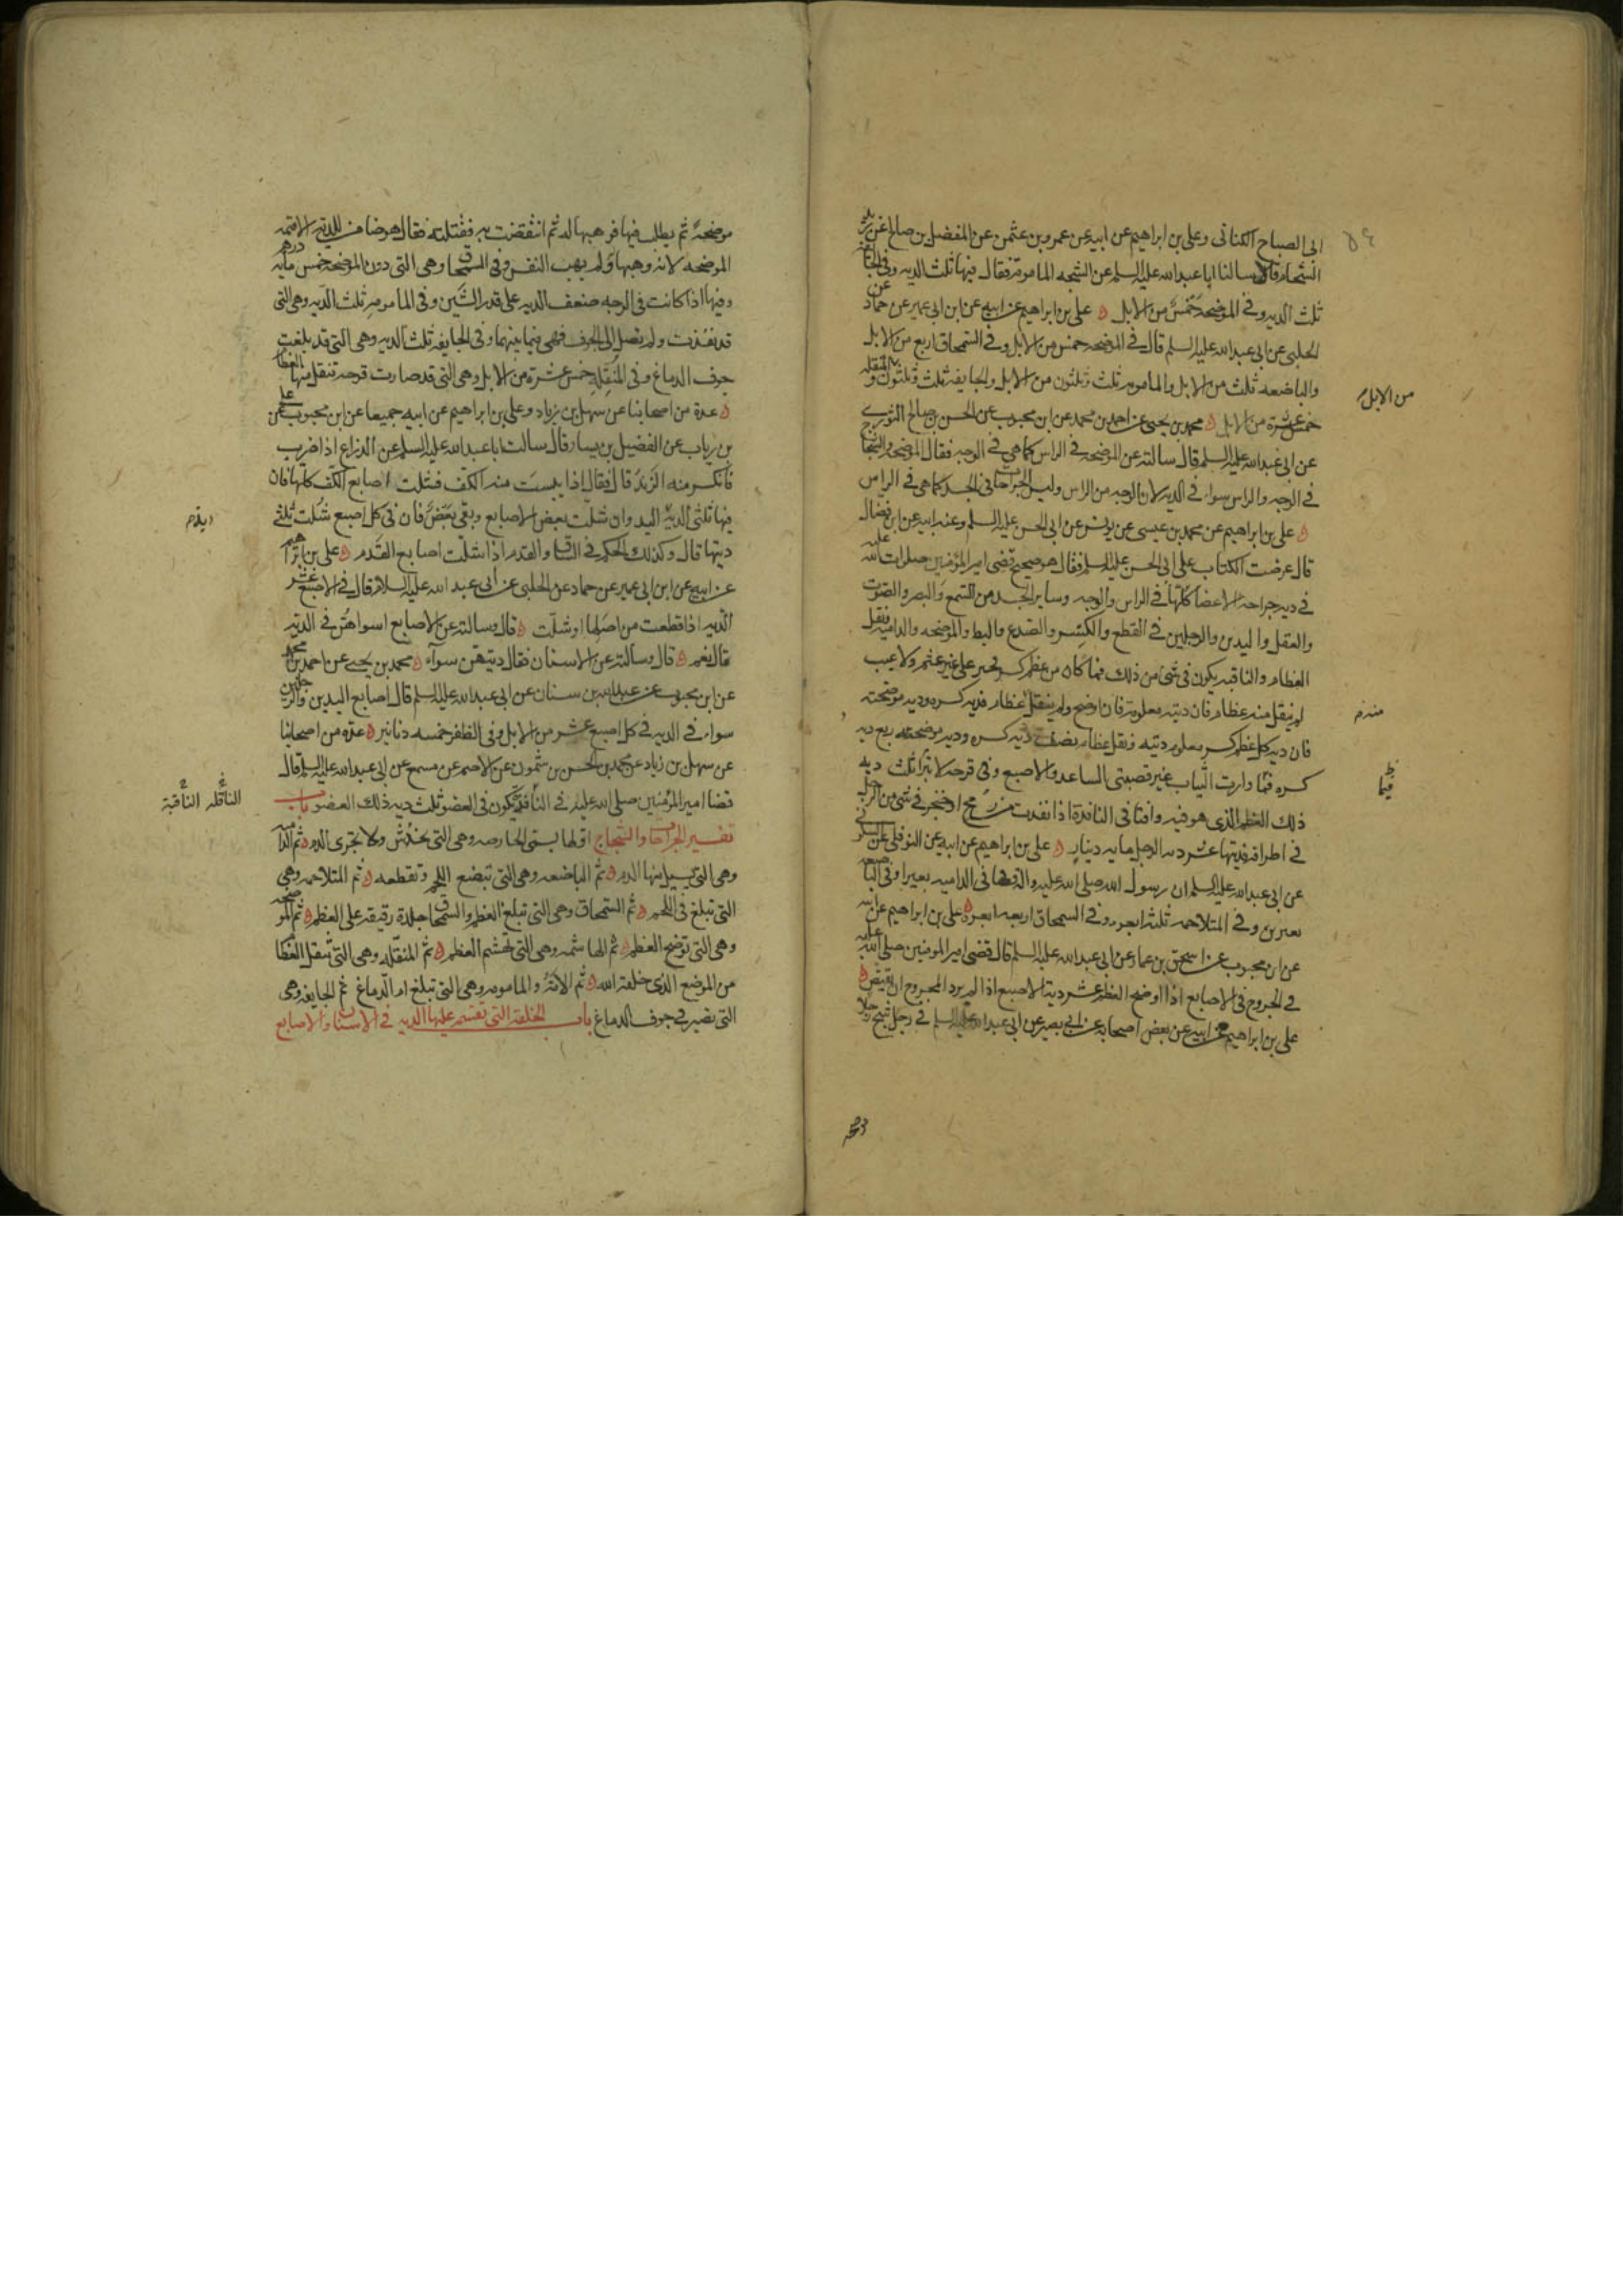 ابى الصباح الكنانى وعلى بن ابراهيم عن ابيه عن عمرو بن عثمن عن المفضل بن صالح عن زيد
الشحام قالا سالنا ابا عبدالله عليه السلم عن الشجه المامومة فقال فيها ثلث الديه وفى الجايفه
ثلث الديه وفى الموضحة خمس من الابل ه على بن ابراهيم عن ابيه عن ابن ابى عمير عن حماد عن
الحلبى عن ابى عبدالله عليه السلم قال فى الموضحه خمس من الابل وفى السمحاق اربع من الابل
والباضعه ثلث من الابل والمامومه ثلث وثلثون من الابل والجايفه ثلث وثلثون والمنقله
من الابل
خمس عشرة من الابل ه محمد بن يحيى عن احمد بن محمد عن ابن محبوب عن الحسن بن صالح الثورى
عن ابى عبدالله عليه السلم قال سالته عن الموضحه فى الراس كما هى فى الوجه فقال الموضحه والشجاج
فى الوجه والراس سواء فى الديه لان الوجه من الراس وليس الجراحات فى الجسد كما هى فى الراس
ه على بن ابراهيم عن محمد بن عيسى عن يونس عن ابى الحسن عليه السلم وعنه ابيه عن ابن فضال
قال عرضت الكتاب على ابى الحسن عليه السلم فقال هو صحيح قضى امير المؤمنين صلوات الله عليه
فى ديه جراحه الاعضا كلها فى الراس والوجه وساير الجسد من السمع والبصر والصوت
والعقل واليدين والرجلين فى القطع والكسر والصدع والبط والموضحه والداميه ونقل
العظام والناقبه يكون فى شئ من ذلك فما كان من عظم كسر فجبر على غير عثم ولا عيب
لم ينقل منه عظام فان ديته معلومة فان اوضح ولم ينقل عظام فديه كسره وديه موضحته
فان ديه كل عظم كسر معلوم ديته ونقل عظامه نصف ديه كسره وديه موضحته ربع ديه
كسره فما وارت الثياب غير قصبتى الساعد والاصبع وفى قرحه لا تبرا ثلث ديه
فيما
ذلك العظم الذى هو فيه وافتا فى النافذة اذا نفذت من رمح او خنجر فى شئ من الرجل
فى اطرافه فديتها عشر ديه الرجل مايه دينار ه على بن ابراهيم عن ابيه عن النوفلى عن السكونى
عن ابى عبدالله عليه السلم ان رسول الله صلى الله عليه واله قضى فى الداميه بعيرا وفى الباضعه
بعيرين وفى المتلاحمه ثلثه ابعره وفى السمحاق اربعه ابعره ه على بن ابراهيم عن ابيه
عن ابن محبوب عن اسحق بن عمار عن ابى عبدالله عليه السلم قال قضى امير المومنين صلى الله عليه
فى الجروح فى الاصابع اذا اوضح العظم عشر دية الاصبع اذا لم يرد المجروح ان يقتص ه
على بن ابراهيم عن ابيه عن بعض اصحابه عن ابى بصير عن ابى عبدالله عليه السلم فى رجل شج رجلا
موضحة ثم يطلب فيها فوهبها له ثم انتقضت به فقتلته فقال هو ضامن للديه الا قيمه
الموضحه لانه وهبها ولم يهب النفس وفى السمحاق وهى التى دون الموضحه خمس مائه درهم
وفيها اذا كانت فى الوجه ضعف الديه على قدر الشين وفى المامومه ثلث الديه وهى التى
قد نفذت ولم تصل الى الجوف فهى فيما بينهما وفى الجايفه ثلث الديه وهى التى قد بلغت
جوف الدماغ وفى المنقله خمس عشرة من الابل وهى التى قد صارت قرحه تنقل منها العظام
ه عدة من اصحابنا عن سهل بن زياد وعلى بن ابراهيم عن ابيه جميعا عن ابن محبوب عن على
بن رياب عن الفضيل بن يسار قال سالت ابا عبدالله عليه السلم عن الذراع اذا ضرب
فانكسر منه الزند قال فقال اذا يبست منه الكف فشلت اصابع الكف كلها فان
فيها ثلثى الديه اليد وان شلت بعض الاصابع وبقى بعض فان فى كل اصبع شلت ثلثى
ديتها قال وكذلك الحكم فى الساق والقدم اذا شلت اصابع القدم ه على بن ابراهيم
عن ابيه عن ابن ابى عمير عن حماد عن الحلبى عن ابى عبد الله عليه السلام قال فى الاصبع عشر
الديه اذا قطعت من اصلها او شلت ه قال وسالته عن الاصابع اسواهن فى الديه
قال نعم ه قال وسالته عن الاسنان فقال ديتهن سوآء ه محمد بن يحيى عن احمد بن محمد
عن ابن محبوب عن عبدالله بن سنان عن ابى عبدالله عليه السلم قال اصابع اليدين والرجلين
سواء فى الديه فى كل اصبع عشر من الابل وفى الظفر خمسه دنانير ه عدة من اصحابنا
عن سهل بن زياد عن محمد بن الحسن بن شمون عن الاصم عن مسمع عن ابى عبدالله عليه السلم قال
قضا امير المؤمنين صلى الله عليه فى النافذة يكون فى العضو ثلث ديه ذلك العضو باب
الناقله الناقبة
تفسير الجراحات والشجاج اولها يسمى الحارصه وهى التى تخدش ولا تجرى الدم ه ثم الداميه
وهى التى يسيل منها الدم ه ثم الباضعه وهى التى تبضع اللحم وتقطعه ه ثم المتلاحمه وهى
التى تبلغ فى اللحم ه ثم السمحاق وهى التى تبلغ العظم والسمحاق جلدة رقيقه على العظم ه ثم الموضحه
وهى التى توضح العظم ه ثم الهاشمه وهى التى تهشم العظم ه ثم المنقله وهى التى تنقل العظام
من الموضع الذى خلقه الله ه ثم الامه والمامومه وهى التى تبلغ ام الدماغ ثم الجايفه وهى
التى تصير فى جوف الدماغ باب الخلقة التى تقسم عليها الديه فى الاسنان والاصابع